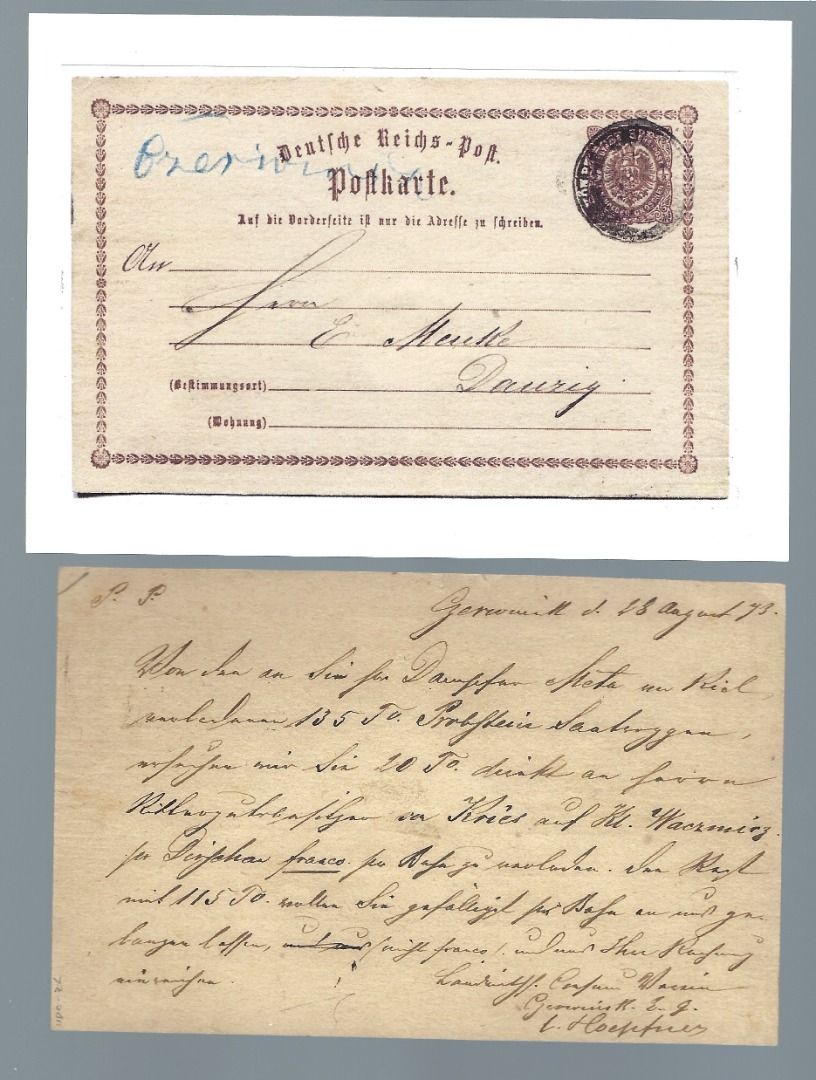 Czerwinsk
Deutsche Reichs-Post.
Postkarte.
Auf die Vorderseite ist nur die Adresse zu schreiben.
An
Herrn
E Menke
Danzig
(Bestimmungsort)
(Wohnung)
P. P. Czerwinsk d. 28 August 73.
Von den an Sie per Dampfer Meta von Kiel
verladenen 135 To. Probsteier Saatroggen,
ersuchen wir Sie 20 To. direkt an Herrn
Rittergutsbesitzer von Kries auf Kl. Waczmirz
per Dirschau franco per Bahn zu verladen. Den Rest
mit 115 To. wollen Sie gefälligst per Bahn an uns ge-
langen lassen, (nicht franco), und uns Ihre Rechnung
einreichen.
Landwirthsch. Consum Verein
Czerwinsk. E. G.
Hoepfner